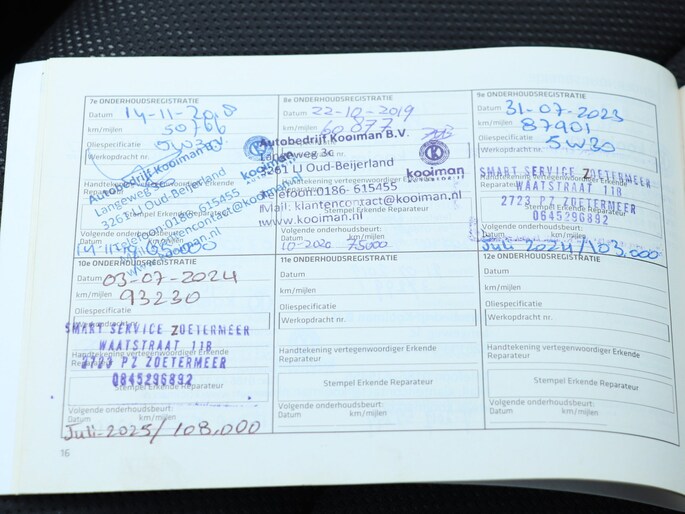 7e ONDERHOUDSREGISTRATIE
Datum 14-11-2018
km/mijlen 50766
Oliespecificatie 5W30
Werkopdracht nr.
Autobedrijf Kooiman B.V.
Langeweg 3c
3261 LJ Oud-Beijerland
Telefoon: 0186- 615455
Mail: klantencontact@kooiman.nl
www.kooiman.nl
kooiman
Stempel Erkende Reparateur
Volgende onderhoudsbeurt:
Datum
8e ONDERHOUDSREGISTRATIE
Datum 22-10-2019
km/mijlen 60077
Oliespecificatie
Werkopdracht nr.
Autobedrijf Kooiman B.V.
Langeweg 3c
3261 LJ Oud-Beijerland
Telefoon: 0186- 615455
Mail: klantencontact@kooiman.nl
www.kooiman.nl
K
kooiman
Volgende onderhoudsbeurt:
Datum km/mijlen
10-2020 75000
9e ONDERHOUDSREGISTRATIE
Datum 31-07-2023
km/mijlen 87901
Oliespecificatie 5W30
Werkopdracht nr.
SMART SERVICE ZOETERMEER
WAATSTRAAT 118
2723 PZ ZOETERMEER
0845296892
Stempel Erkende Reparateur
Volgende onderhoudsbeurt:
Datum km/mijlen
Juli-2024/103.000
10e ONDERHOUDSREGISTRATIE
Datum 03-07-2024
km/mijlen 93230
Oliespecificatie
Werkopdracht nr.
SMART SERVICE ZOETERMEER
WAATSTRAAT 118
Handtekening vertegenwoordiger Erkende
Reparateur
2723 PZ ZOETERMEER
0845296892
Stempel Erkende Reparateur
Volgende onderhoudsbeurt:
Datum km/mijlen
Juli-2025/108.000
11e ONDERHOUDSREGISTRATIE
Datum
km/mijlen
Oliespecificatie
Werkopdracht nr.
Handtekening vertegenwoordiger Erkende
Reparateur
Stempel Erkende Reparateur
Volgende onderhoudsbeurt:
Datum km/mijlen
12e ONDERHOUDSREGISTRATIE
Datum
km/mijlen
Oliespecificatie
Werkopdracht nr.
Handtekening vertegenwoordiger Erkende
Reparateur
Stempel Erkende Reparateur
Volgende onderhoudsbeurt:
Datum km/mijlen
16